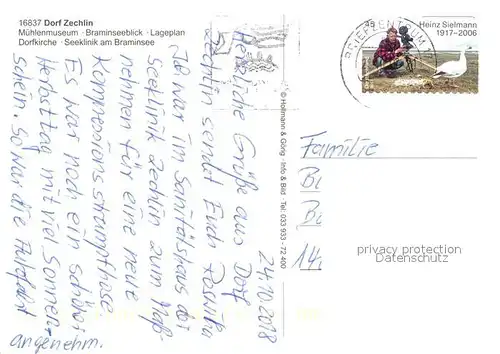 16837 Dorf Zechlin
Mühlenmuseum · Braminseeblick · Lageplan
Dorfkirche · Seeklinik am Braminsee
BRIEFZENTRUM
Heinz Sielmann
1917–2006
24.10.2018
Herzliche Grüße aus Dorf
Zechlin sendet Euch
Ich war im Sanitätshaus bei
Seeklinik Zechlin zum Maß-
nehmen für eine neue
Kompressionsstrumpfhose
Es war noch ein schöner
Herbsttag mit viel Sonnen-
schein. So war die Autofahrt
angenehm.
© Hollmann & Görig · Info & Bild · Tel.: 033 933 - 72 400
Familie
B
B
14
privacy protection
Datenschutz